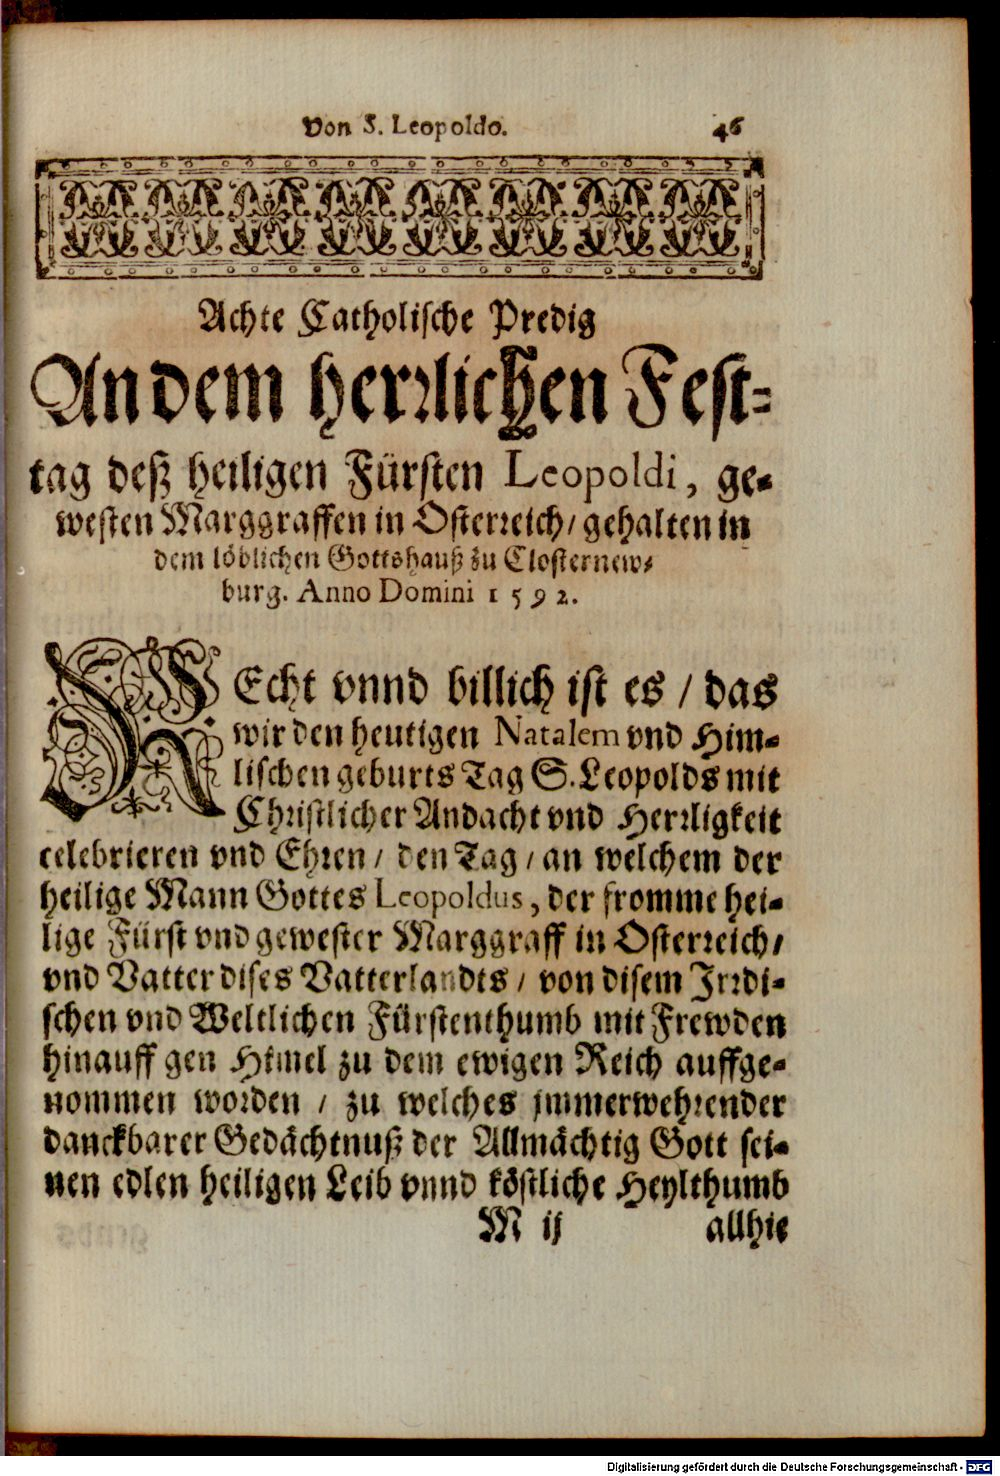 Von S. Leopoldo. 46
Achte Catholische Predig
An dem herrlichen Fest-
tag deß heiligen Fürsten Leopoldi, ge-
westen Marggraffen in Osterreich/ gehalten in
dem löblichen Gottshauß zu Closternew-
burg. Anno Domini 1592.
REcht vnnd billich ist es / das
wir den heutigen Natalem vnd Him-
lischen geburts Tag S. Leopolds mit
Christlicher Andacht vnd Herrligkeit
celebrieren vnd Ehren/ den Tag/ an welchem der
heilige Mann Gottes Leopoldus, der fromme hei-
lige Fürst vnd gewester Marggraff in Osterreich/
vnd Vatter dises Vatterlandts / von disem Irrdi-
schen vnd Weltlichen Fürstenthumb mit Frewden
hinauff gen Himel zu dem ewigen Reich auffge-
nommen worden / zu welches jmmerwehrender
danckbarer Gedächtnuß der Allmächtig Gott sei-
nen edlen heiligen Leib vnnd köstliche Heylthumb
M ij allhie
Digitalisierung gefördert durch die Deutsche Forschungsgemeinschaft - DFG